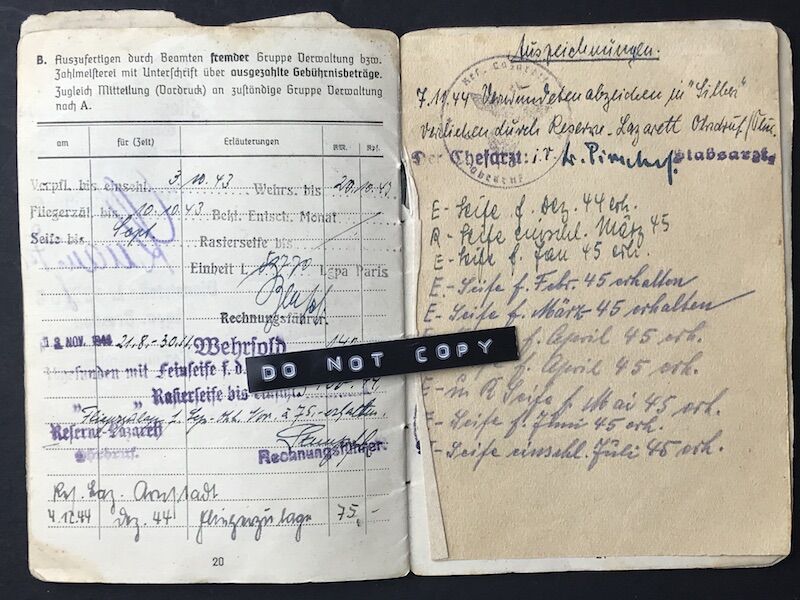 B. Auszufertigen durch Beamten fremder Gruppe Verwaltung bzw.
Zahlmeisterei mit Unterschrift über ausgezahlte Gebührnisbeträge.
Zugleich Mitteilung (Vordruck) an zuständige Gruppe Verwaltung
nach A.
am für (Zeit) Erläuterungen RM. Rpf.
Verpfl. bis einschl. 3.10.43 Wehrs. bis 20.10.43
Fliegerzul. bis 10.10.43 Bekl. Entsch. Monat
Seife bis Sept Rasierseife bis
Einheit L Lgpa Paris
Rechnungsführer.
NOV. 1944 21.8.-30.11. Wehrsold
mit Feinseife f. d.
" " Rasierseife bis
75,- erhalten.
Reserve-Lazarett
Ohrdruf.
Rechnungsführer
Res. Laz. Arnstadt
4.12.44 Dez. 44 Fliegerzulage 75,-
20
DO NOT COPY
Auszeichnungen.
Res. Lazarett
Ohrdruf
7.10.44 Verwundetenabzeichen in "Silber"
verliehen durch Reserve-Lazarett Ohrdruf/Thür.
Der Chefarzt: i.V. Stabsarzt
E - Seife f. Dez. 44 erh.
R - Seife einschl. März 45
E - Seife f. Jan 45 erh.
E - Seife f. Febr. 45 erhalten
E - Seife f. März 45 erhalten
f. April 45 erh.
f. April 45 erh.
E - u R Seife f. Mai 45 erh.
- Seife f. Juni 45 erh.
- Seife einschl. Juli 45 erh.